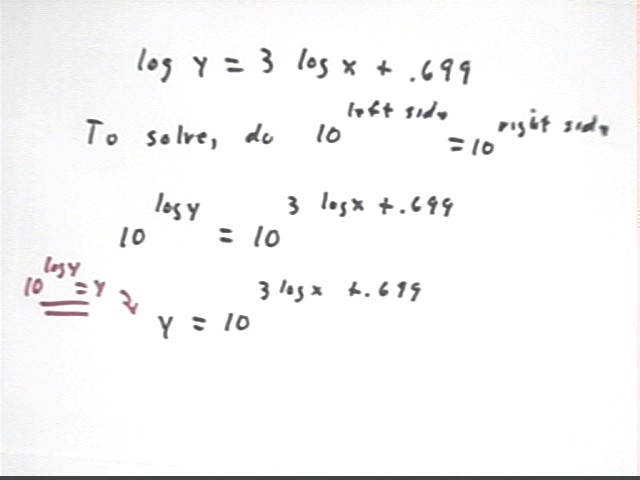 log y = 3 log x + .699
To solve, do 10^left side = 10^right side
10^log y = 10^3 log x + .699
10^log y = y
y = 10^3 log x + .699